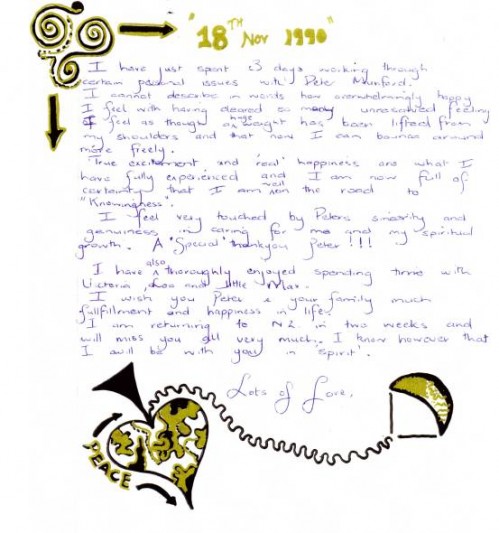 "18TH Nov 1990"
I have just spent 3 days working through
certain personal issues with Peter Mumford.
I cannot describe in words how overwhelmingly happy
I feel with having cleared so many unresolved feeling
I feel as though a huge weight has been lifted from
my shoulders and that now I can bounce around
more freely.
"True excitement and real" happiness are what I
have fully experienced and I am now full of
certainty that I am well on the road to
"Knowingness".
I feel very touched by Peters sincerity and
genuiness in caring for me and my spiritual
growth. A "Special" thankyou Peter !!!
I have also thoroughly enjoyed spending time with
Victoria, Zoa and little Max.
I wish you Peter & your family much
fullfillment and happiness in life.
I am returning to N.Z. in two weeks and
will miss you all very much. I know however that
I will be with you in 'spirit'.
Lots of Love,
PEACE